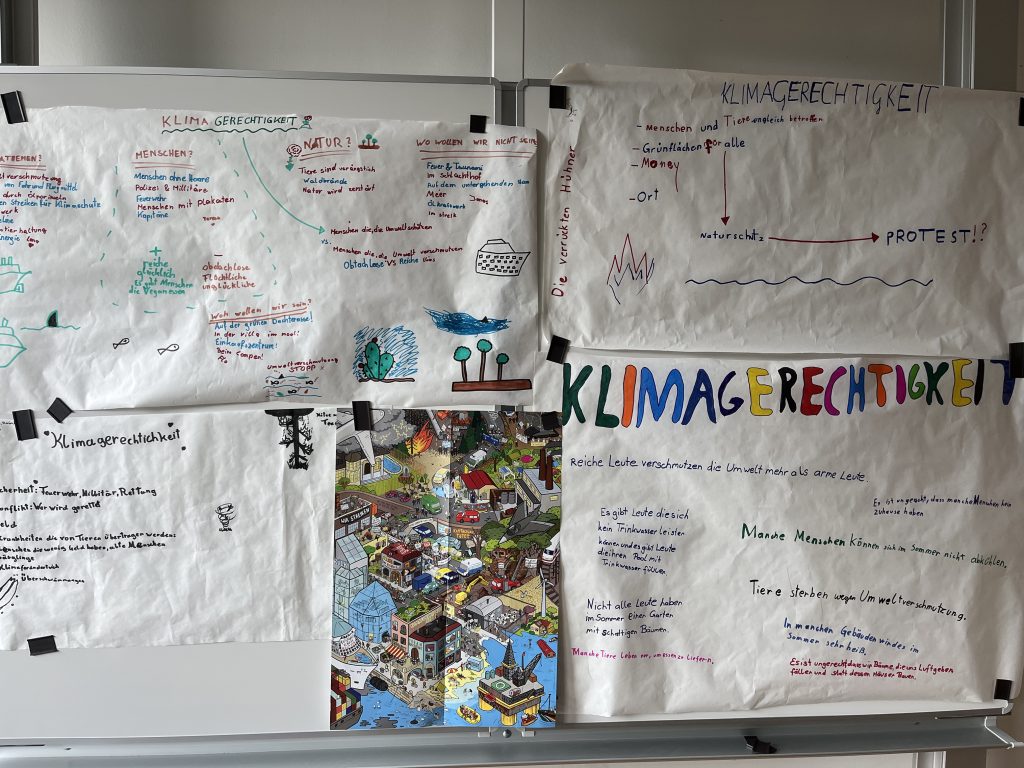 KLIMA GERECHTIGKEIT
MENSCHEN?
Menschen ohne Homes
Polizei & Millitäre
Feuerwehr
Menschen mit plakaten
Kapitäne
NATUR?
Tiere sind verängstlich
Waldbrände
Natur wird zerstört
WO WOLLEN WIR NICHT SEIN?
Feuer & Tsunami
Im Schlachthof
Auf dem untergehenden
Meer
Ölkraftwerk
Im streik
Menschen die, die Umwelt schützen
vs.
Menschen die, die Umwelt verschmutzen
Obtachlose VS Reiche
+
reiche
glücklich
Es gibt Menschen
die Vegan essen
–
obdachlose
Flüchtliche
unglückliche
Woh wollen wir sein?
Auf der grünen Dachterasse!
In der villa im pool!
Einkaufszentrum!
Beim Campen!
Umweltverschmutzung
STOPP
KLIMAGERECHTIGKEIT
Die verrückten Hühner
- Menschen und Tiere ungleich betroffen
- Grünflächen for alle
- Money
- Ort
Naturschutz
PROTEST!?
Klimagerechlichkeit
cherheit: Feuerwehr, Millitär, Rettung
onflikt: Wer wird gerettet
eld
Krankheiten die von Tieren übertragen werden:
enschen die wenig Geld haben, alte Menschen
Überschwemmungen
WIR STREIKEN
KLIMAGERECHTIGKEIT
Reiche Leute verschmutzen die Umwelt mehr als arme Leute.
Es ist ungerecht, dass manche Menschen kein
zuhause haben
Es gibt Leute die sich
kein Trinkwasser leisten
können und es gibt Leute
die ihren Pool mit
Trinkwasser füllen.
Manche Menschen können sich im Sommer nicht abkühlen.
Tiere sterben wegen Umweltverschmutzung.
Nicht alle Leute haben
im Sommer einen Garten
mit schattigen Bäumen.
In manchen Gebäuden wird es im
Sommer sehr heiß.
Manche Tiere Leben nur, um essen zu liefern.
Es ist ungerecht dass wir Bäume, die uns Luft geben
fällen und statt dessen Häuser Bauen.